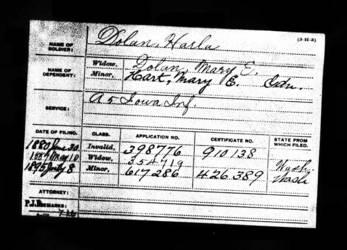 (3-15-3)
NAME OF SOLDIER: Dolan, Harla
NAME OF DEPENDENT: Widow. Dolan, Mary E.
Minor. Hart, Mary E. Gdn.
SERVICE: A 5 Iowa Inf.
DATE OF FILING. CLASS. APPLICATION NO. CERTIFICATE NO. STATE FROM WHICH FILED.
1880 June 30 Invalid. 398776 910138
May 10 Widow. 354719 Wash.
1895 July 8 Minor. 617286 426.389 Wash
ATTORNEY:
REMARKS: